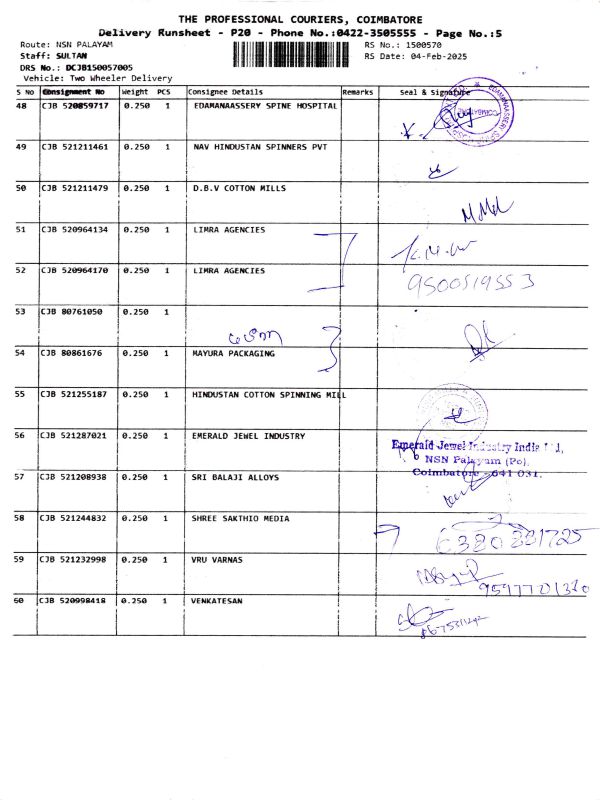 THE PROFESSIONAL COURIERS, COIMBATORE
Delivery Runsheet - P20 - Phone No.:0422-3505555 - Page No.:5
Route: NSN PALAYAM RS No.: 1500570
Staff: SULTAN RS Date: 04-Feb-2025
DRS No.: DCJB150057005
Vehicle: Two Wheeler Delivery
S No Consignment No Weight PCS Consignee Details Remarks Seal & Signature
48 CJB 520859717 0.250 1 EDAMANAASSERY SPINE HOSPITAL
49 CJB 521211461 0.250 1 NAV HINDUSTAN SPINNERS PVT
50 CJB 521211479 0.250 1 D.B.V COTTON MILLS
51 CJB 520964134 0.250 1 LIMRA AGENCIES
52 CJB 520964170 0.250 1 LIMRA AGENCIES 9500519553
53 CJB 80761050 0.250 1
54 CJB 80861676 0.250 1 MAYURA PACKAGING
55 CJB 521255187 0.250 1 HINDUSTAN COTTON SPINNING MILL
56 CJB 521287021 0.250 1 EMERALD JEWEL INDUSTRY
Emerald Jewel Industry India Ltd,
NSN Palayam (Po),
Coimbatore - 641 031.
57 CJB 521208938 0.250 1 SRI BALAJI ALLOYS
58 CJB 521244832 0.250 1 SHREE SAKTHIO MEDIA 6380881725
59 CJB 521232998 0.250 1 VRU VARNAS
60 CJB 520998418 0.250 1 VENKATESAN